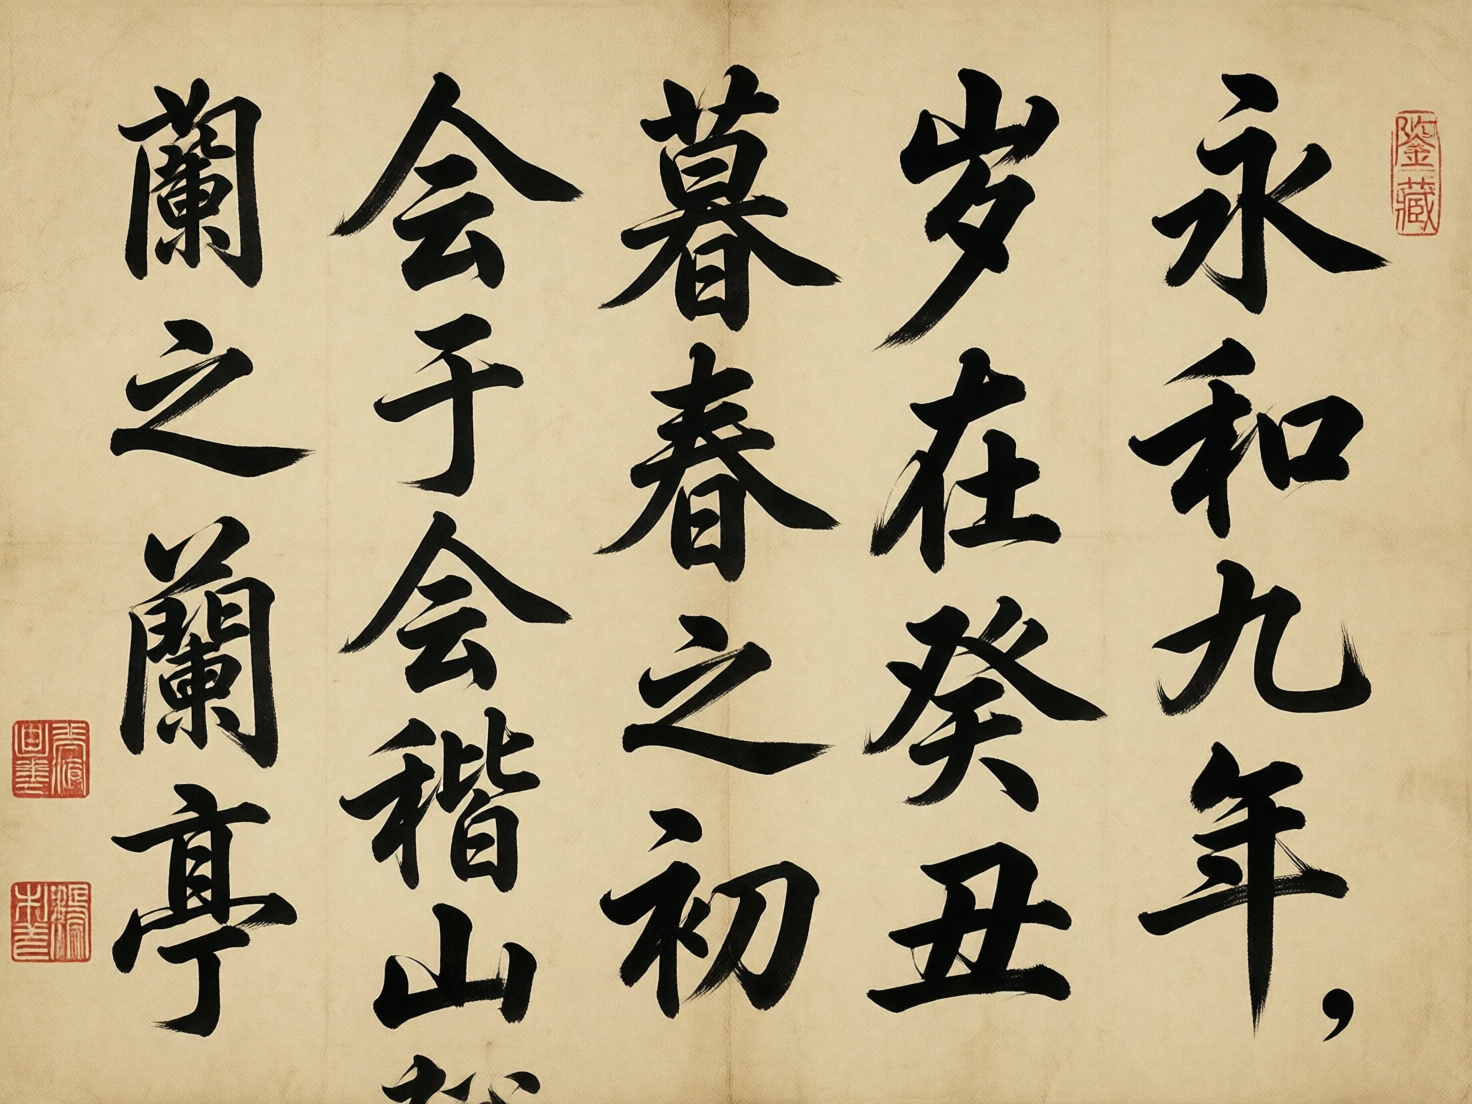 永和九年，
岁在癸丑
暮春之初
会于会稽山
蘭之蘭亭
鑒藏